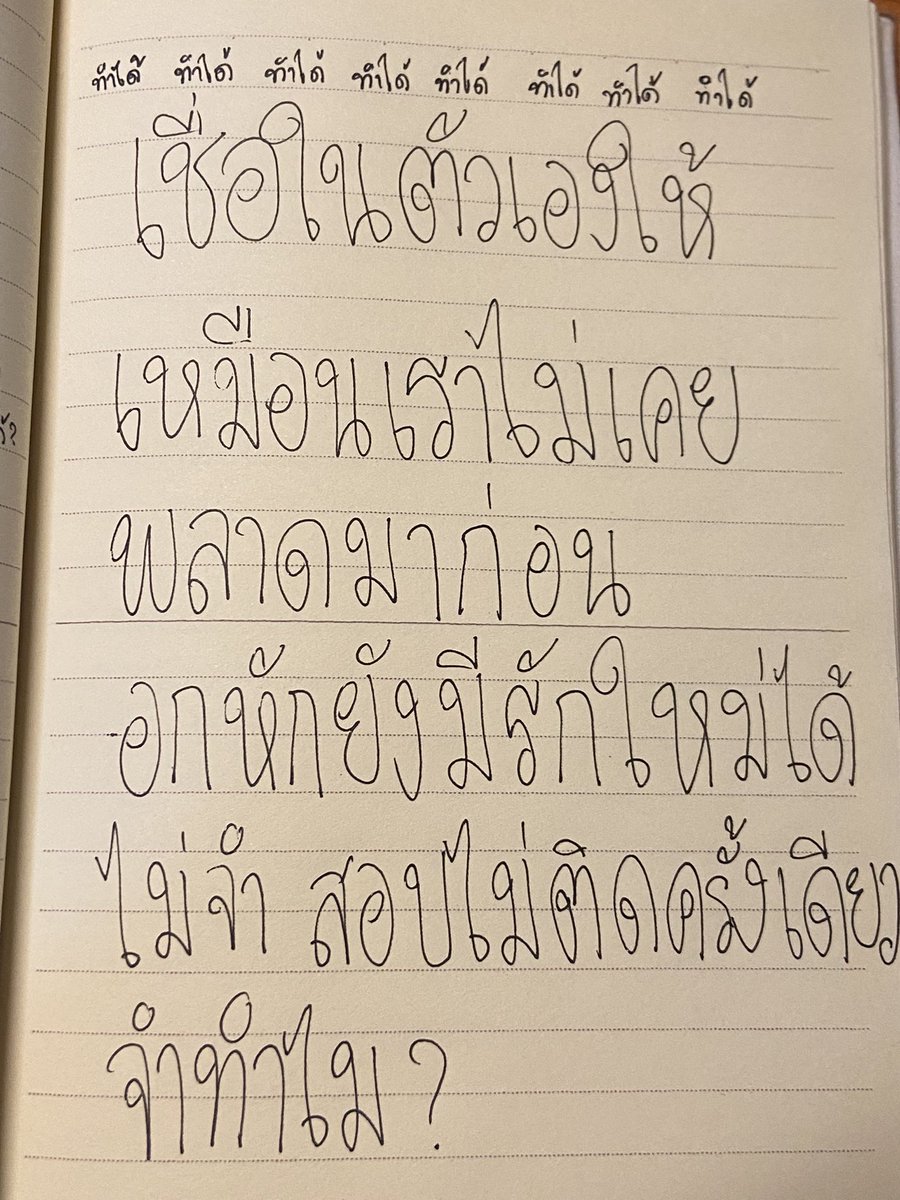 ทำได้ ทำได้ ทำได้ ทำได้ ทำได้ ทำได้ ทำได้ ทำได้
เชื่อในตัวเองให้
เหมือนเราไม่เคย
พลาดมาก่อน
อกหักยังมีรักใหม่ได้
ไม่จำ สอบไม่ติดครั้งเดียว
จำทำไม?